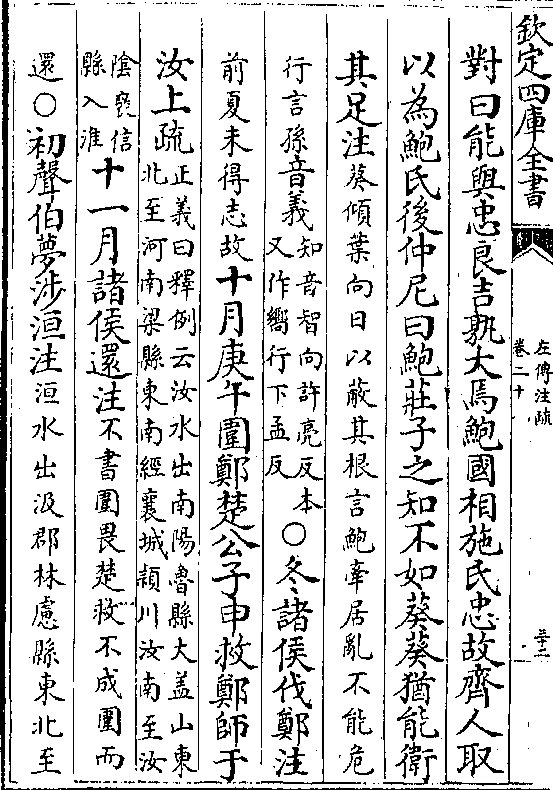 欽定四庫全書
左傳注疏
卷二十
三十二
對曰能與忠良吉孰大焉鮑國相施氏忠故齊人取
以為鮑氏後仲尼曰鮑莊子之知不如葵葵猶能衛
其足注葵傾葉向日以蔽其根言鮑牽居亂不能危
行言孫音義知音智向許亮反本
又作嚮行下孟反
○冬諸侯伐鄭注
前夏未得志故十月庚午圍鄭楚公子申救鄭師于
汝上疏正義曰釋例云汝水出南陽魯縣大盖山東
北至河南梁縣東南經襄城潁川汝南至汝
陰褒信
縣入淮
十一月諸侯還注不書圍畏楚救不成圍而
還○初聲伯夢涉洹注洹水出汲郡林慮縣東北至